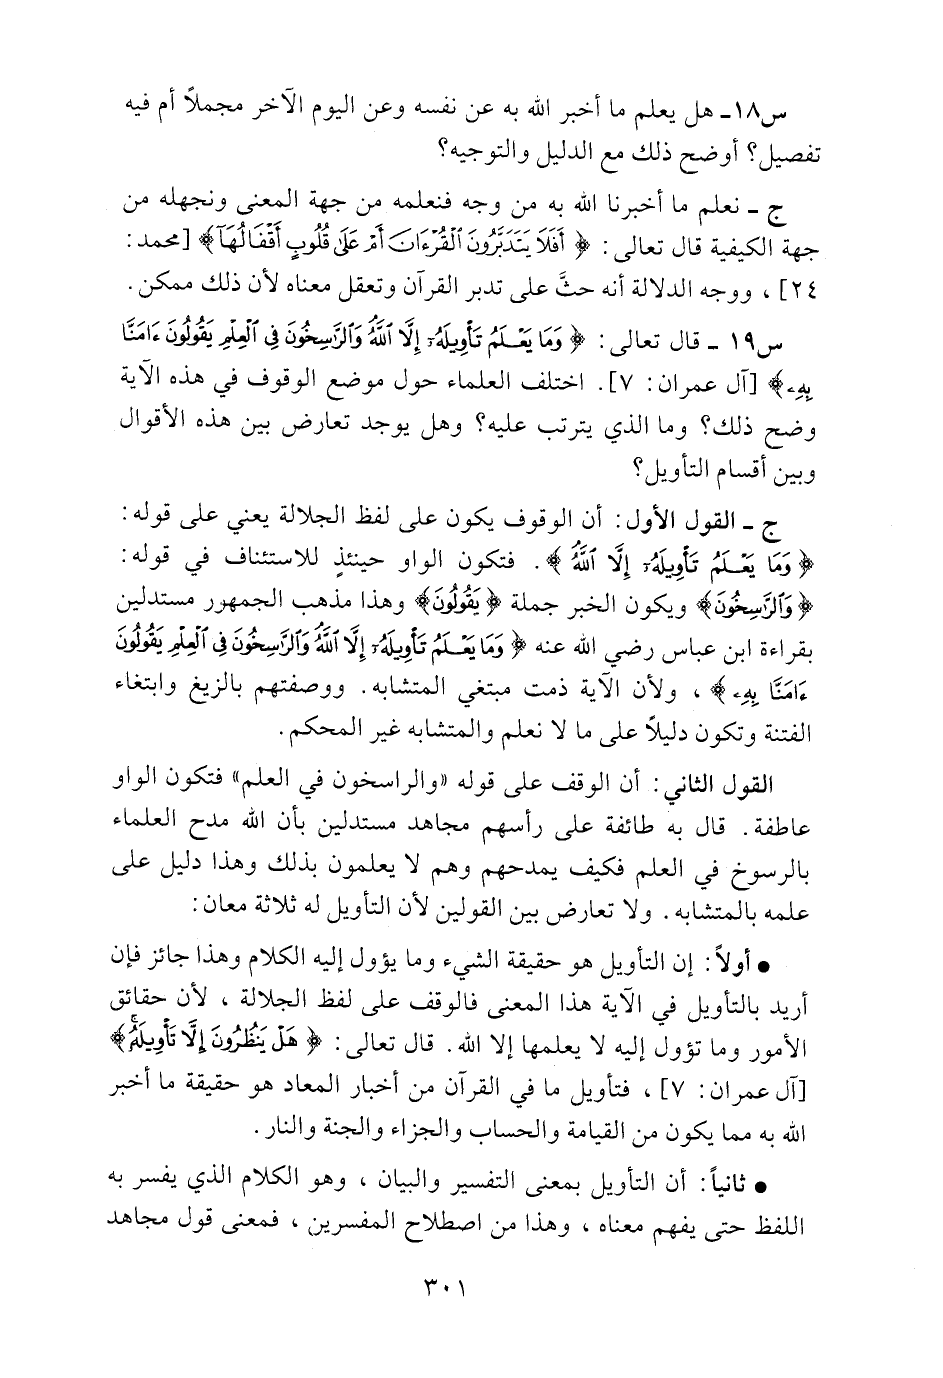 س١٨ـ هل يعلم ما أخبر الله به عن نفسه وعن اليوم الآخر مجملاً أم فيه
تفصيل؟ أوضح ذلك مع الدليل والتوجيه؟
ج ـ نعلم ما أخبرنا الله به من وجه فنعلمه من جهة المعنى ونجهله من
جهة الكيفية قال تعالى: ﴿أَفَلَا يَتَدَبَّرُونَ ٱلْقُرْءَانَ أَمْ عَلَىٰ قُلُوبٍ أَقْفَالُهَآ﴾ [محمد:
٢٤]، ووجه الدلالة أنه حثَّ على تدبر القرآن وتعقل معناه لأن ذلك ممكن.
س١٩ ـ قال تعالى: ﴿وَمَا يَعْلَمُ تَأْوِيلَهُۥٓ إِلَّا ٱللَّهُ وَٱلرَّٰسِخُونَ فِى ٱلْعِلْمِ يَقُولُونَ ءَامَنَّا
بِهِۦ﴾ [آل عمران: ٧]. اختلف العلماء حول موضع الوقوف في هذه الآية
وضح ذلك؟ وما الذي يترتب عليه؟ وهل يوجد تعارض بين هذه الأقوال
وبين أقسام التأويل؟
ج ـ القول الأول: أن الوقوف يكون على لفظ الجلالة يعني على قوله:
﴿وَمَا يَعْلَمُ تَأْوِيلَهُۥٓ إِلَّا ٱللَّهُ﴾. فتكون الواو حينئذٍ للاستئناف في قوله:
﴿وَٱلرَّٰسِخُونَ﴾ ويكون الخبر جملة ﴿يَقُولُونَ﴾ وهذا مذهب الجمهور مستدلين
بقراءة ابن عباس رضي الله عنه ﴿وَمَا يَعْلَمُ تَأْوِيلَهُۥٓ إِلَّا ٱللَّهُ وَٱلرَّٰسِخُونَ فِى ٱلْعِلْمِ يَقُولُونَ
ءَامَنَّا بِهِۦ﴾، ولأن الآية ذمت مبتغي المتشابه. ووصفتهم بالزيغ وابتغاء
الفتنة وتكون دليلاً على ما لا نعلم والمتشابه غير المحكم.
القول الثاني: أن الوقف على قوله «والراسخون في العلم» فتكون الواو
عاطفة. قال به طائفة على رأسهم مجاهد مستدلين بأن الله مدح العلماء
بالرسوخ في العلم فكيف يمدحهم وهم لا يعلمون بذلك وهذا دليل على
علمه بالمتشابه. ولا تعارض بين القولين لأن التأويل له ثلاثة معان:
• أولاً: إن التأويل هو حقيقة الشيء وما يؤول إليه الكلام وهذا جائز فإن
أريد بالتأويل في الآية هذا المعنى فالوقف على لفظ الجلالة، لأن حقائق
الأمور وما تؤول إليه لا يعلمها إلا الله. قال تعالى: ﴿هَلْ يَنظُرُونَ إِلَّا تَأْوِيلَهُۥ﴾
[آل عمران: ٧]، فتأويل ما في القرآن من أخبار المعاد هو حقيقة ما أخبر
الله به مما يكون من القيامة والحساب والجزاء والجنة والنار.
• ثانياً: أن التأويل بمعنى التفسير والبيان، وهو الكلام الذي يفسر به
اللفظ حتى يفهم معناه، وهذا من اصطلاح المفسرين، فمعنى قول مجاهد
٣٠١